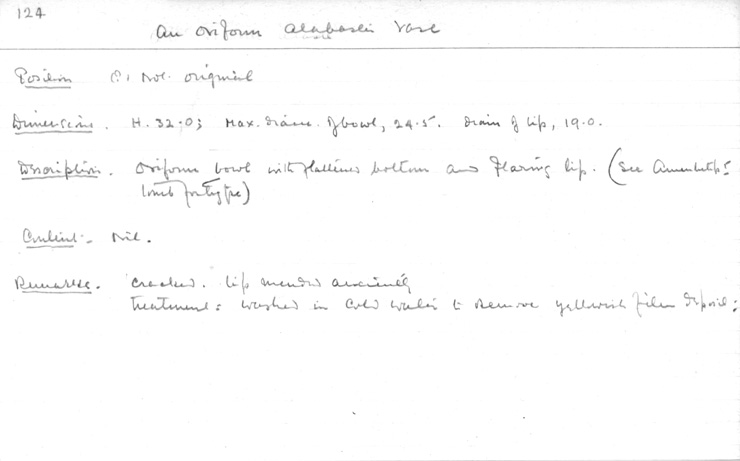 124
An oviform alabaster vase
Position C, Not original
Dimensions. H. 32.0; Max. diam. of bowl, 24.5. diam of lip, 19.0.
Description. Oviform bowl with flattened bottom and flaring lip. (See Amenhetep's
tomb for type)
Content. Nil.
Remarks. Cracked. lip mended anciently
Treatment: washed in cold water to remove yellowish film deposit: